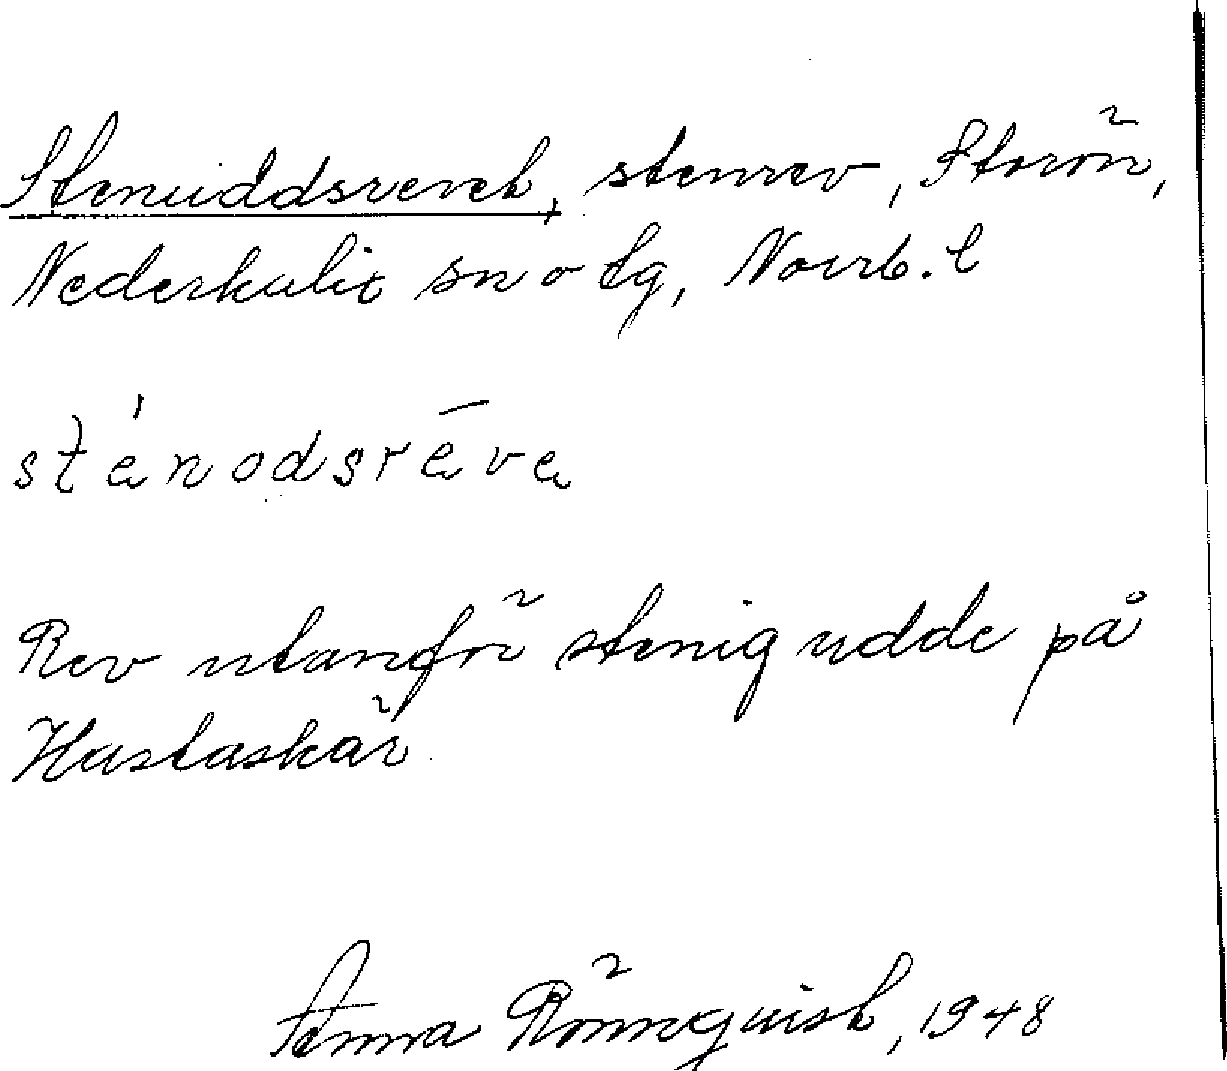 Stenuddsrevet, stenrev, Storön,
Nederkalix sn o tg, Norrb. l
sténodsrēva
Rev utanför stenig udde på
Hastaskär
Anna Rönnquist, 1948